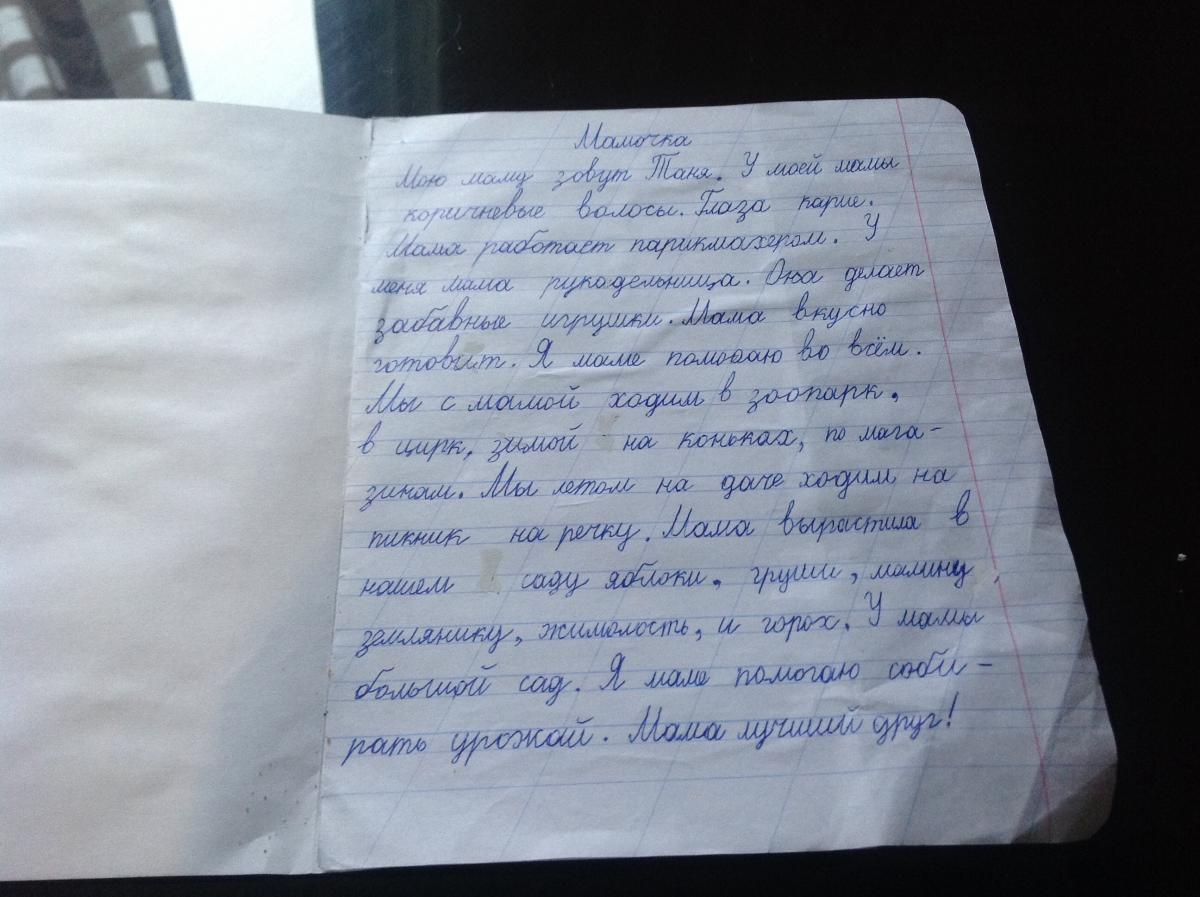 Мамочка
Мою маму зовут Таня. У моей мамы
коричневые волосы. Глаза карие.
Мама работает парикмахером. У
меня мама рукодельница. Она делает
забавные игрушки. Мама вкусно
готовит. Я маме помогаю во всём.
Мы с мамой ходим в зоопарк,
в цирк, зимой на коньках, по мага-
зинам. Мы летом на даче ходим на
пикник на речку. Мама вырастила в
нашем саду яблоки, груши, малину,
землянику, жимолость, и горох. У мамы
большой сад. Я маме помогаю соби-
рать урожай. Мама лучший друг!